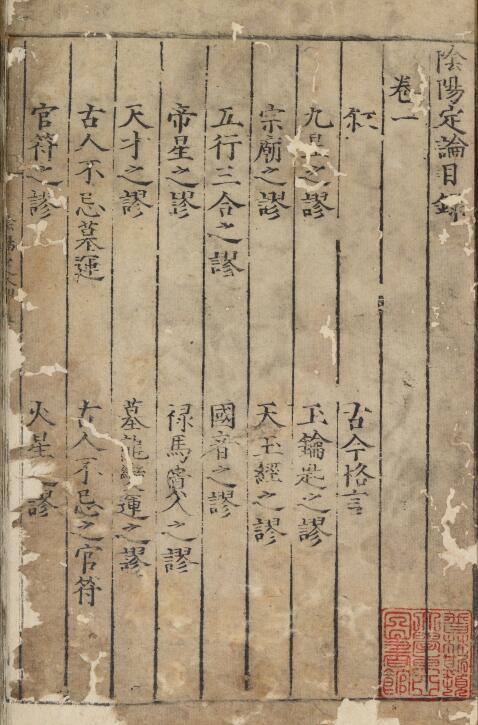 陰陽定論目錄
卷一
敘 古今格言
九星之謬 玉鑰匙之謬
宗廟之謬 天玉經之謬
五行三合之謬 國音之謬
帝星之謬 祿馬貴人之謬
天才之謬 墓龍變運之謬
古人不忌墓運 古人不忌之官符
官符之謬 火星之謬